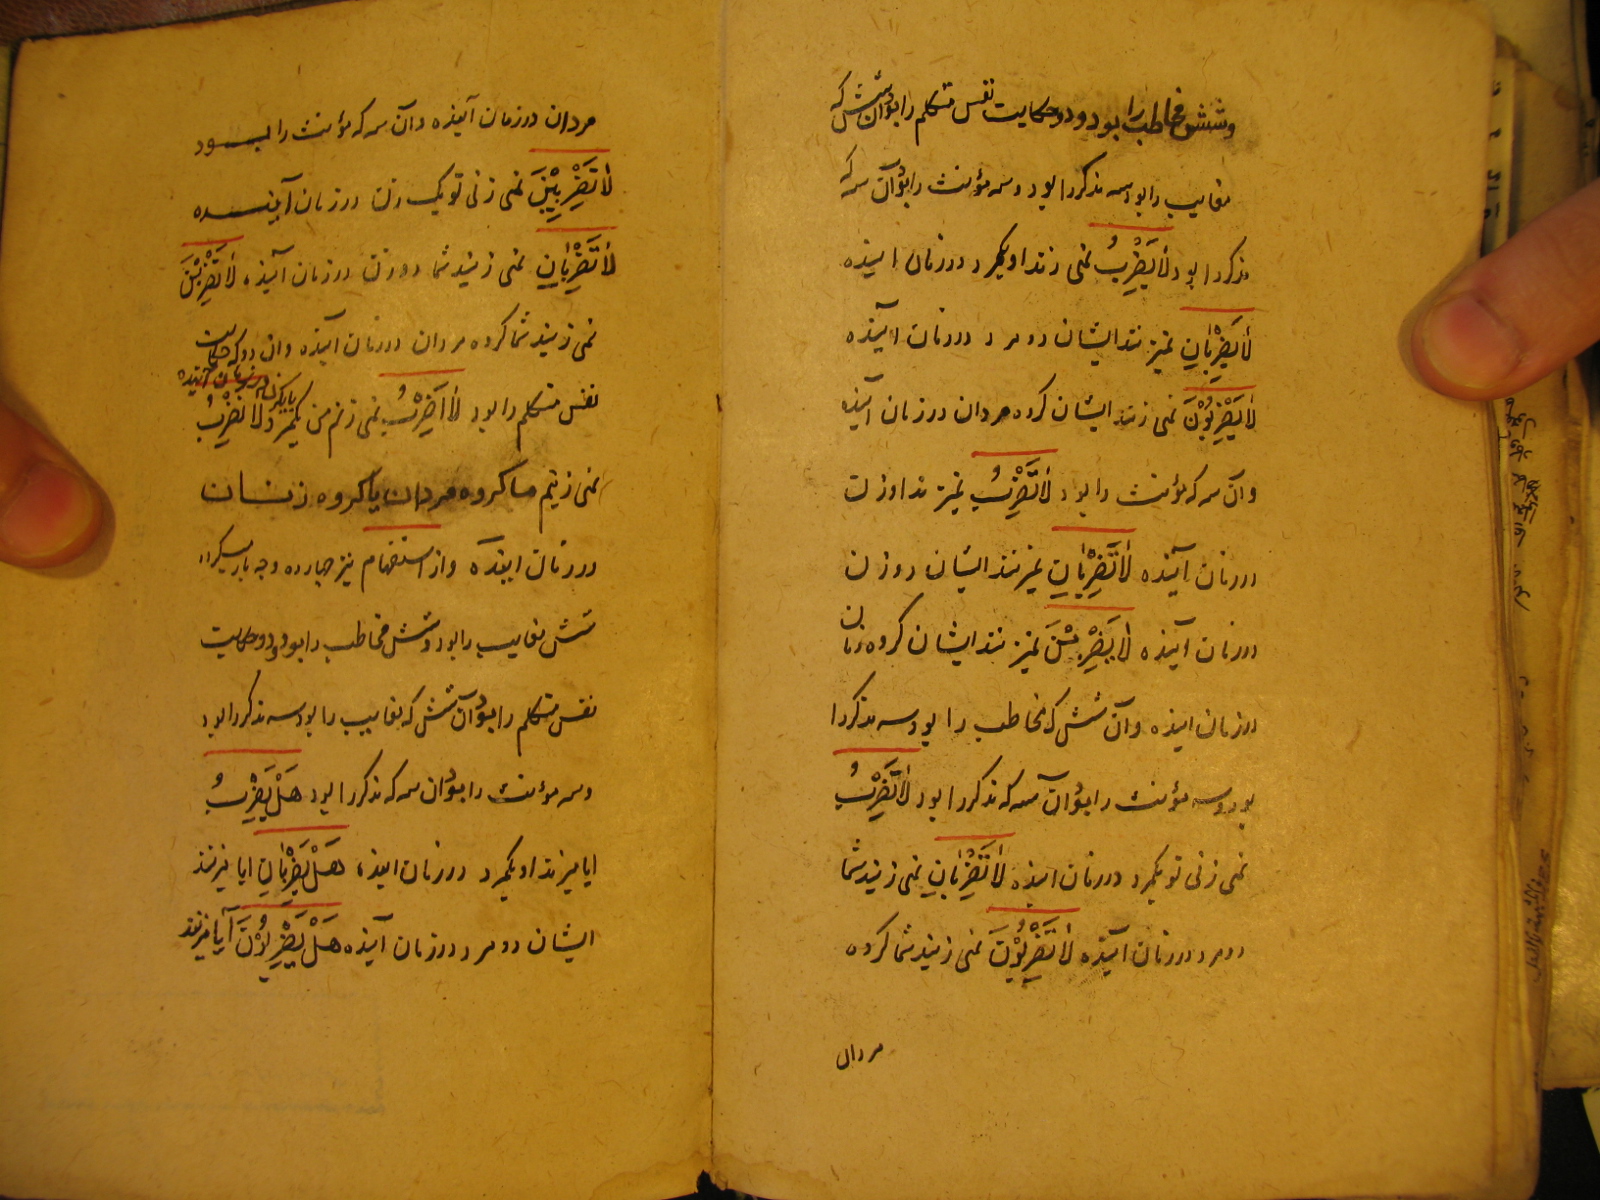 وشش مخاطب را بود و دو حکایت نفس متکلم را بود وآن شش که
مغایب را بود سه مذکر را بود و سه مؤنث را بود وآن سه که
مذکر را بود لٰا یَضْرِبُ نمی زند او یکمرد در زمان اینده
لٰا یَضْرِبٰانِ نمیزنند ایشان دو مرد در زمان آینده
لٰا یَضْرِبُوْنَ نمی زنند ایشان کروه مردان در زمان آینده
وآن سه که مؤنث را بود لٰا تَضْرِبُ نمیزند او زن
در زمان آینده لٰا تَضْرِبٰانِ نمیزنند ایشان دو زن
در زمان آینده لٰا یَضْرِبْنَ نمیزنند ایشان کروه زنان
در زمان اینده وآن شش که مخاطب را بود سه مذکر را
بود و سه مؤنث را بود وآن سه که مذکر را بود لٰا تَضْرِبُ
نمی زنی تو یکمرد در زمان اینده لٰا تَضْرِبٰانِ نمی زنید شما
دو مرد در زمان آینده لٰا تَضْرِبُوْنَ نمی زنید شما کروه
مردان
مردان در زمان آینده وآن سه که مؤنث را بود
لٰا تَضْرِبِیْنَ نمی زنی تو یک زن در زمان آینده
لٰا تَضْرِبٰانِ نمی زنید شما دو زن در زمان آینده لٰا تَضْرِبْنَ
نمی زنید شما کروه مردان در زمان آینده وان دو که حکایت
نفس متکلم را بود لٰا اَضْرِبُ نمی زنم من یکمرد لٰا نَضْرِبُ
یا یکزن در زمان آینده
نمی زنیم ما کروه مردان یا کروه زنان
در زمان اینده واز استفهام نیز چهارده وجه باز میکردد
شش مغایب را بود و شش مخاطب را بود و دو حکایت
نفس متکلم را بود وآن شش که مغایب را بود سه مذکر را بود
و سه مؤنث را بود وان سه که مذکر را بود هَلْ یَضْرِبُ
ایا میزند او یکمرد در زمان اینده هَلْ یَضْرِبٰانِ ایا میزنند
ایشان دو مرد در زمان آینده هَلْ یَضْرِبُوْنَ آیا میزنند